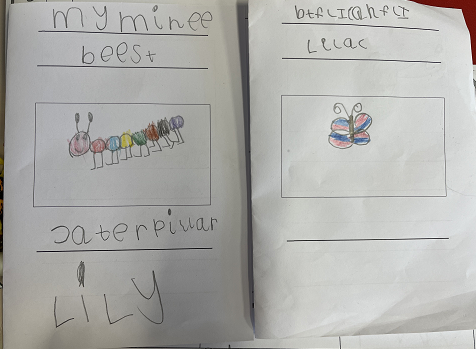 my minee
beest
caterpiuar
LiLY
btflicanfli
Lilac